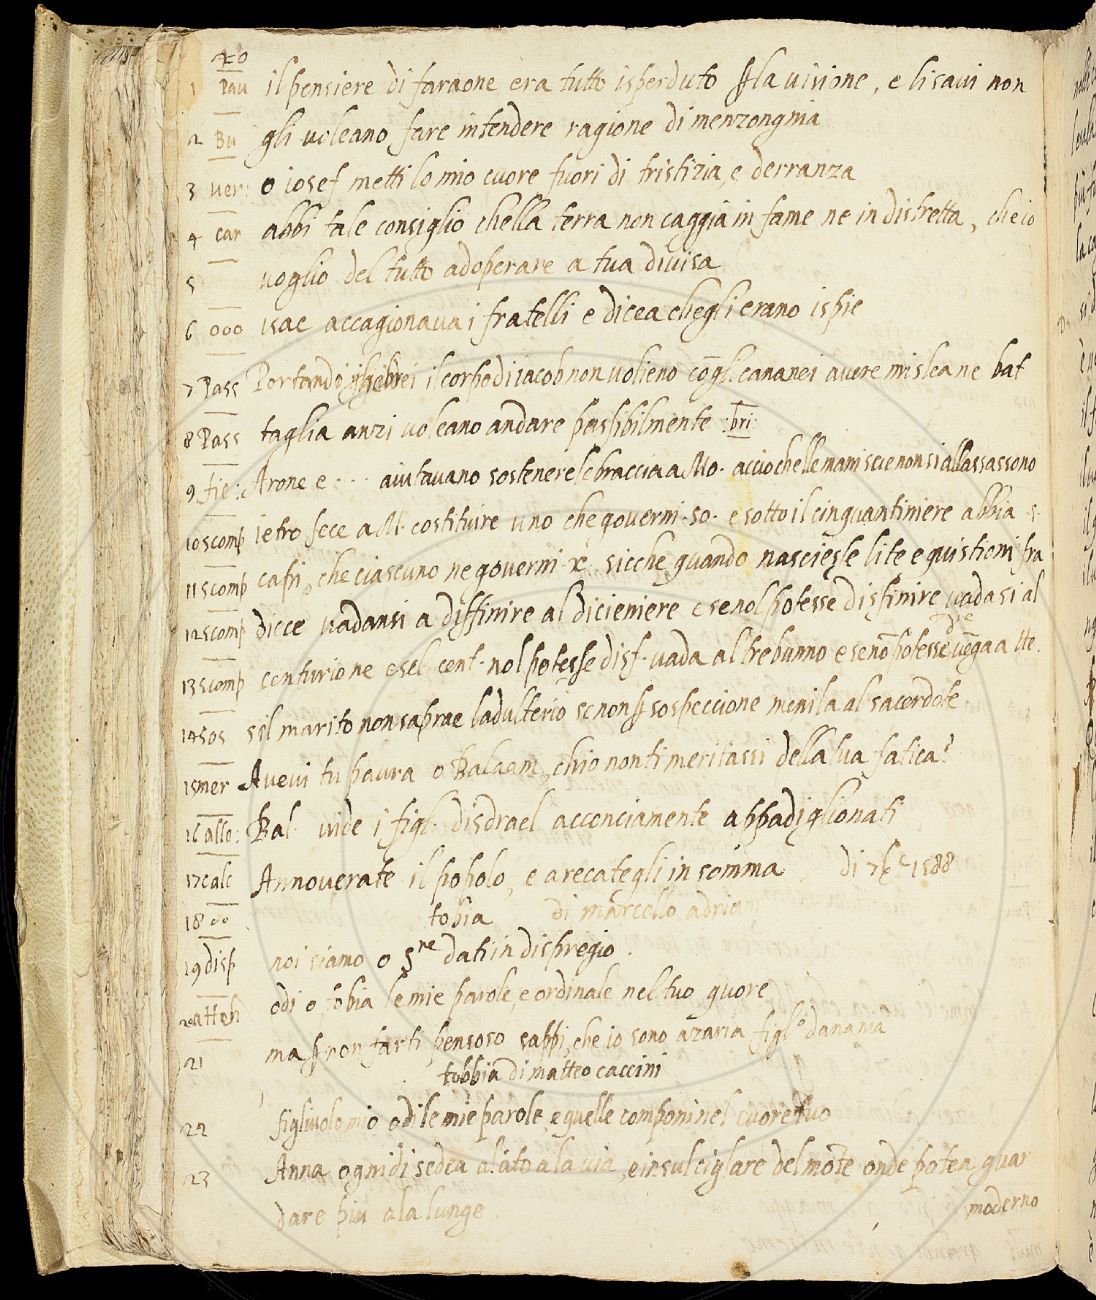 20
1 Pau il pensiere di faraone era tutto isperduto ꝑ la visione, e li savi non
2 Bu gli voleano fare intendere ragione di menzongnia
3 ver: o iosef metti lo mio cuore fuori di tristizia, e derranza
4 car abbi tale consiglio chella terra non caggia in fame ne in distretta, che io
5 voglio del tutto adoperare a tua divisa
6 ooo isac accagionava i fratelli e dicea chegli erano ispie
7 Pass Portando gliebrei il corpo di iacob non volieno cō gli cananei avere mislea ne bat
8 Pass taglia anzi voleano andare passibilmente :bri:
9 fie: Arone e ... aiutavano sostenere le braccia a Mo. accio chelle mani scie non si allassassono
10 scomp ietro fece a M. costituire uno che governi .so. e sotto il cinquantiniere abbia .5.
11 scomp capi, che ciascuno ne governi .x. sicche quando nasciesse lite e quistioni fra
12 scomp diece vadansi a diffinire al dicieniere e se nol potesse disfinire vadasi al
13 scomp centurione e sel cent. nol potesse disf. vada al trebunno e se nō potesse vēga a tte.
14 sos sel marito non saprae ladulterio se non ꝑ sospeccione menila al sacerdote
15 mer Avevi tu paura o Balaam, chio non ti meritassi della tua fatica?
16 allo: Bal. vide i figl. disdrael acconciamente appadiglionati
17 calc Annoverate il popolo, e arecategli in somma di 7bre 1588
18 oo tobia di marcello adriani
19 disp noi siamo o Sne dati in dispregio.
20 atten odi o tobia le mie parole, e ordinale nel tuo quore
21 ma ꝑ non farti pensoso sappi, che io sono azaria figlo danania
tobbia di matteo caccini
22 figliuolo mio odi le mie parole e quelle componi nel cuore tuo
23 Anna ogni di sedea alato a la via, e in sul cigliare del mōte onde potea guar
dare piu a la lunge moderno